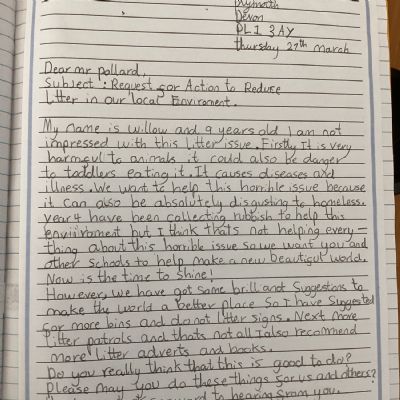 Plymouth
Devon
PL1 3AY
Thursday 27th march
Dear mr pollard,
Subject : Request for Action to Reduce
Litter in our local Enviroment.
My name is willow and 9 years old I am not
impressed with this litter issue. Firstly It is very
harmful to animals it could also be danger
to toddlers eating it. It causes diseases and
illness. We want to help this horrible issue because
it can also be absolutely disgusting to homeless.
year 4 have been collecting rubbish to help this
enviironment but I think thats not helping every-
thing about this horrible issue so we want you and
other schools to help make a new beautigul world.
Now is the time to shine!
However, we have got some brilliant suggestions to
make the world a better place so I have suggested
for more bins and do not litter signs. Next more
litter patrols and thats not all I also recommend
more litter adverts and books.
Do you really think that this is good to do?
Please may you do these things for us and others?
forward to hearing from you.